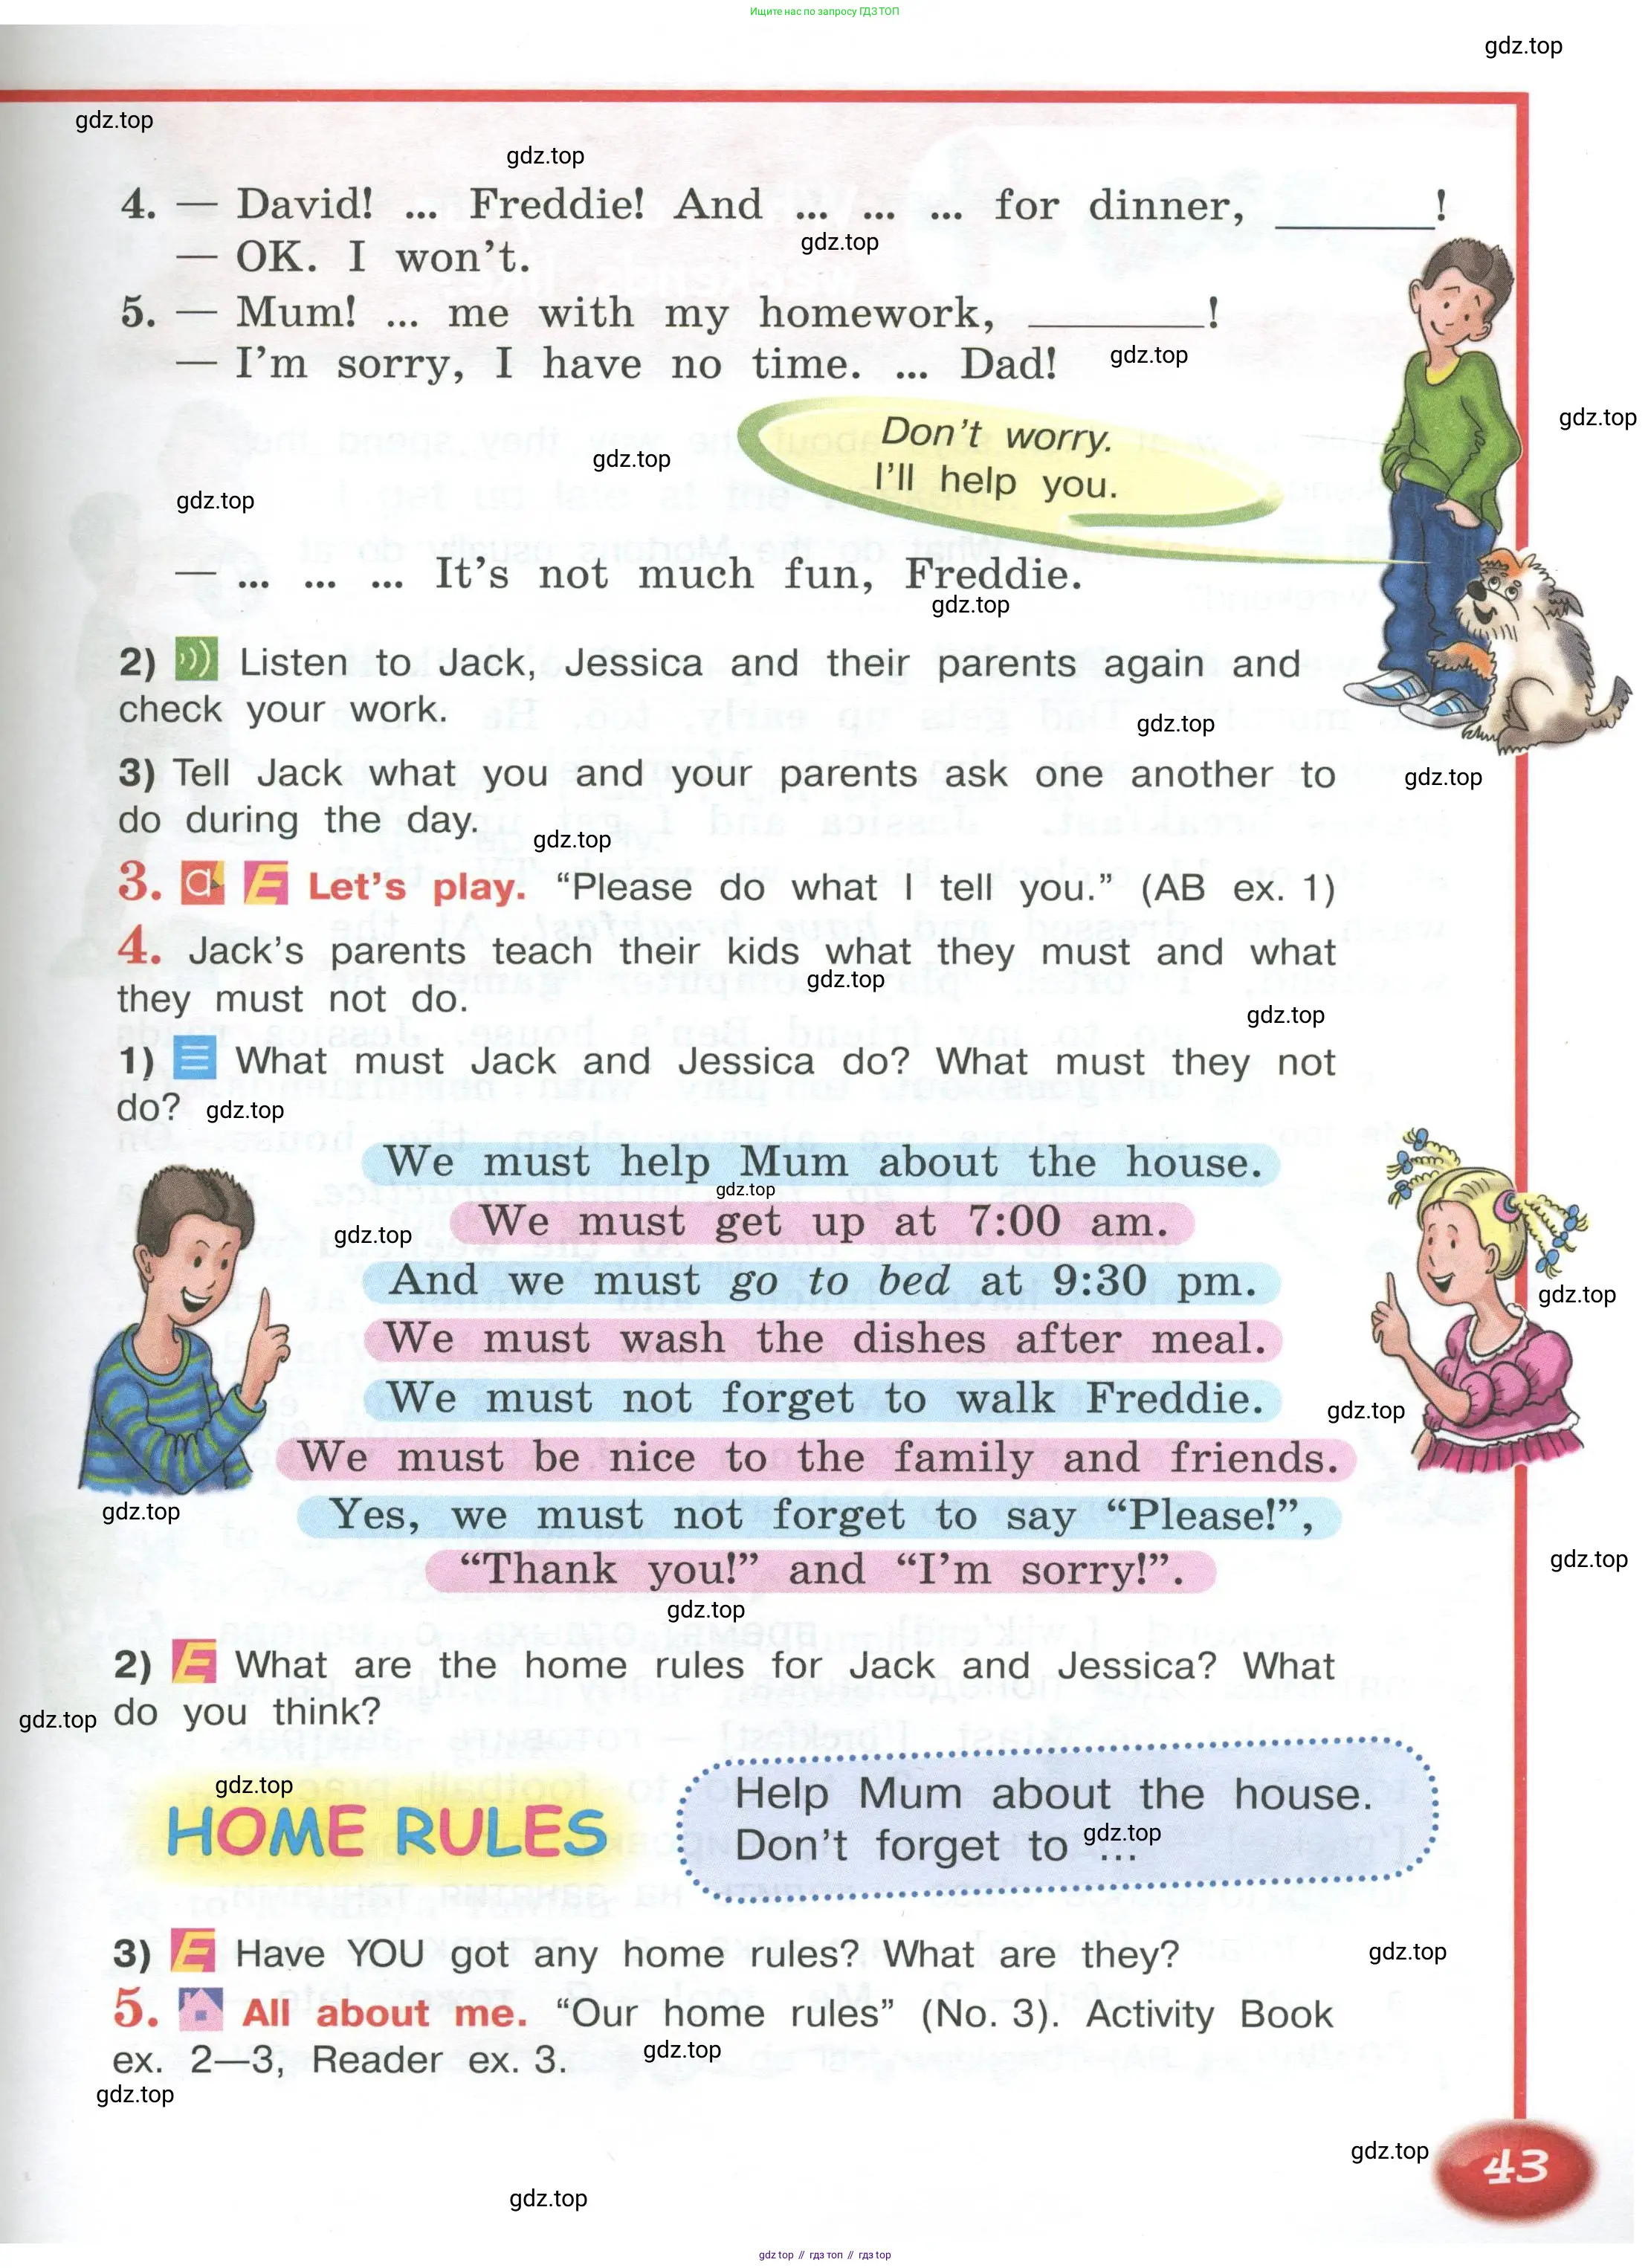 Ищите нас по запросу ГДЗ ТОП
gdz.top
gdz.top
gdz.top
4. — David! ... Freddie! And ... ... ... for dinner, ________!
gdz.top
— OK. I won't.
5. — Mum! ... me with my homework, ________!
gdz.top
— I'm sorry, I have no time. ... Dad!
gdz.top
Don't worry.
I'll help you.
gdz.top
gdz.top
— ... ... ... It's not much fun, Freddie.
gdz.top
2) Listen to Jack, Jessica and their parents again and
check your work.
gdz.top
3) Tell Jack what you and your parents ask one another to
gdz.top
do during the day.
gdz.top
3. a E Let's play. “Please do what I tell you.” (AB ex. 1)
4. Jack's parents teach their kids what they must and what
gdz.top
they must not do.
gdz.top
1) What must Jack and Jessica do? What must they not
do?
gdz.top
We must help Mum about the house.
gdz.top
We must get up at 7:00 am.
gdz.top
And we must go to bed at 9:30 pm.
gdz.top
We must wash the dishes after meal.
We must not forget to walk Freddie.
gdz.top
We must be nice to the family and friends.
gdz.top
Yes, we must not forget to say “Please!”,
“Thank you!” and “I'm sorry!”.
gdz.top
gdz.top
2) E What are the home rules for Jack and Jessica? What
gdz.top
do you think?
gdz.top
HOME RULES
Help Mum about the house.
Don't forget to ...
gdz.top
3) E Have YOU got any home rules? What are they?
gdz.top
5. All about me. “Our home rules” (No. 3). Activity Book
ex. 2—3, Reader ex. 3.
gdz.top
gdz.top
gdz.top
43
gdz.top
gdz top // гдз топ // gdz top